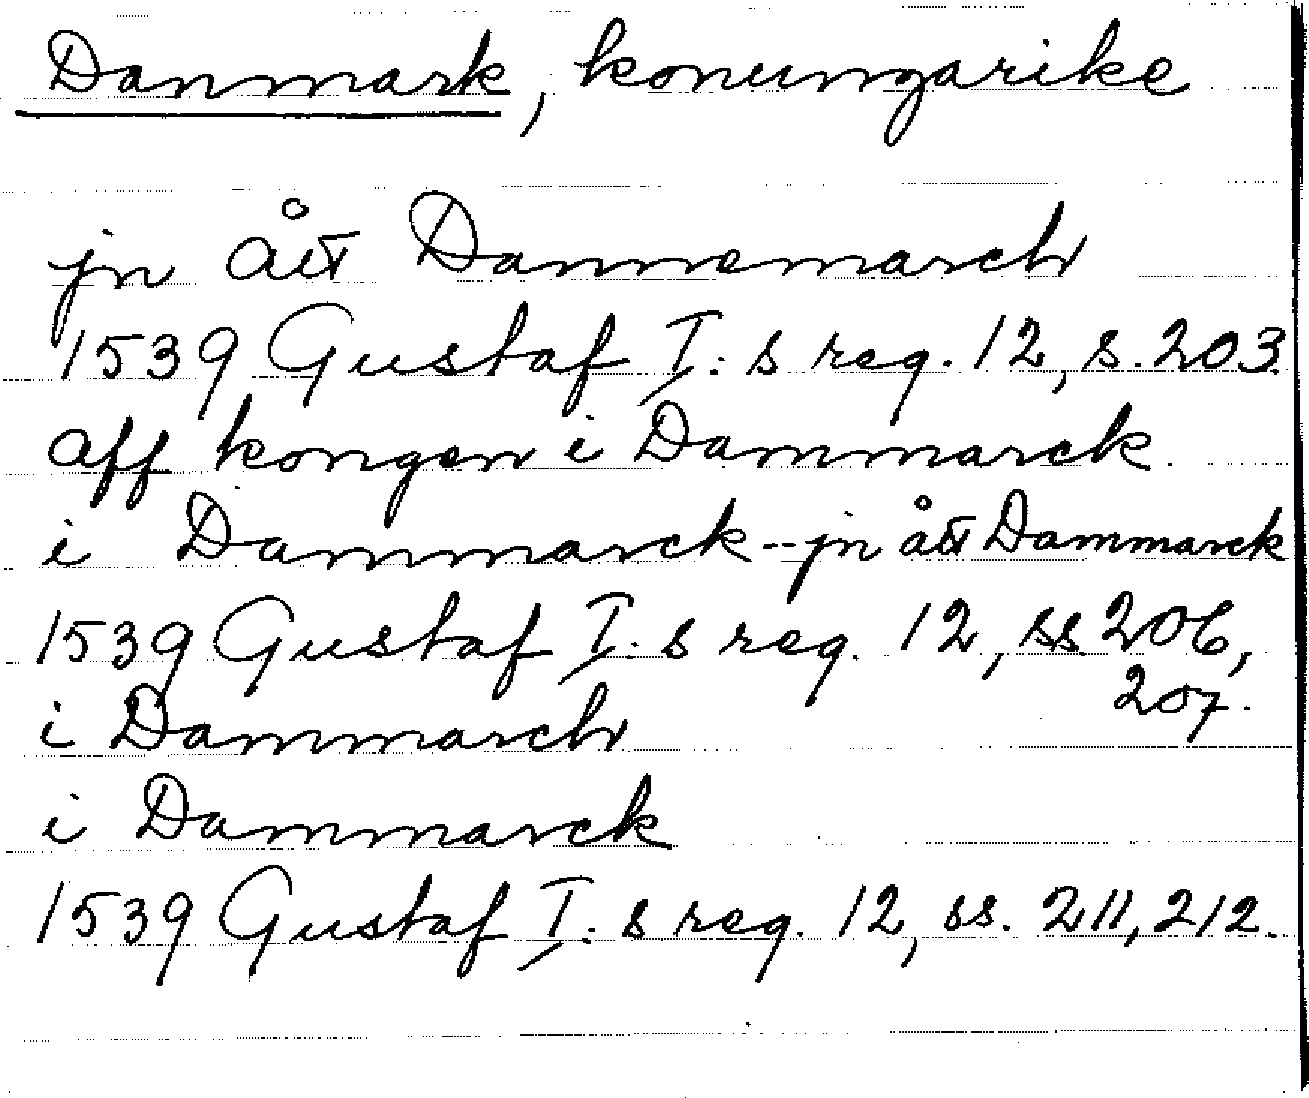 Danmark, konungarike
jn ått Dannemarch
1539 Gustaf I:s reg. 12, s. 203.
aff kongen i Dammarck.
i Dammarck--jn ått Dammarck
1539 Gustaf I:s reg. 12, ss. 206,
207.
i Dammarch
i Dammarck
1539 Gustaf I:s reg. 12, ss. 211, 212.